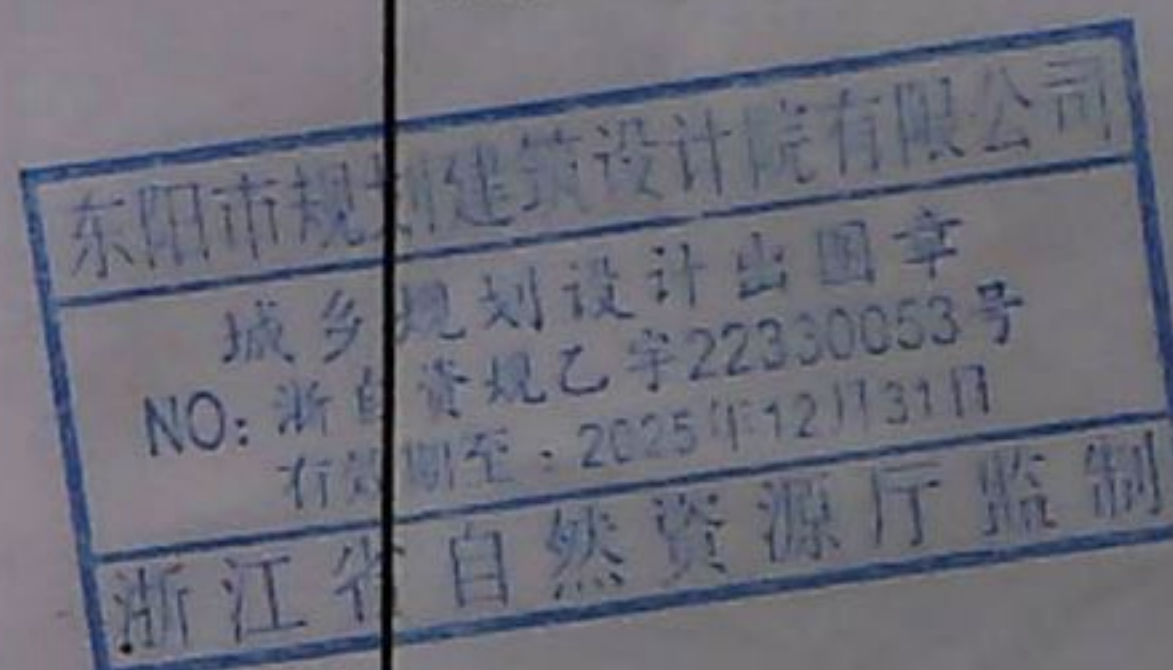 东阳市规划建筑设计院有限公司
城乡规划设计出图章
NO: 浙自资规乙字22330053号
有效期至：2025年12月31日
浙江省自然资源厅监制